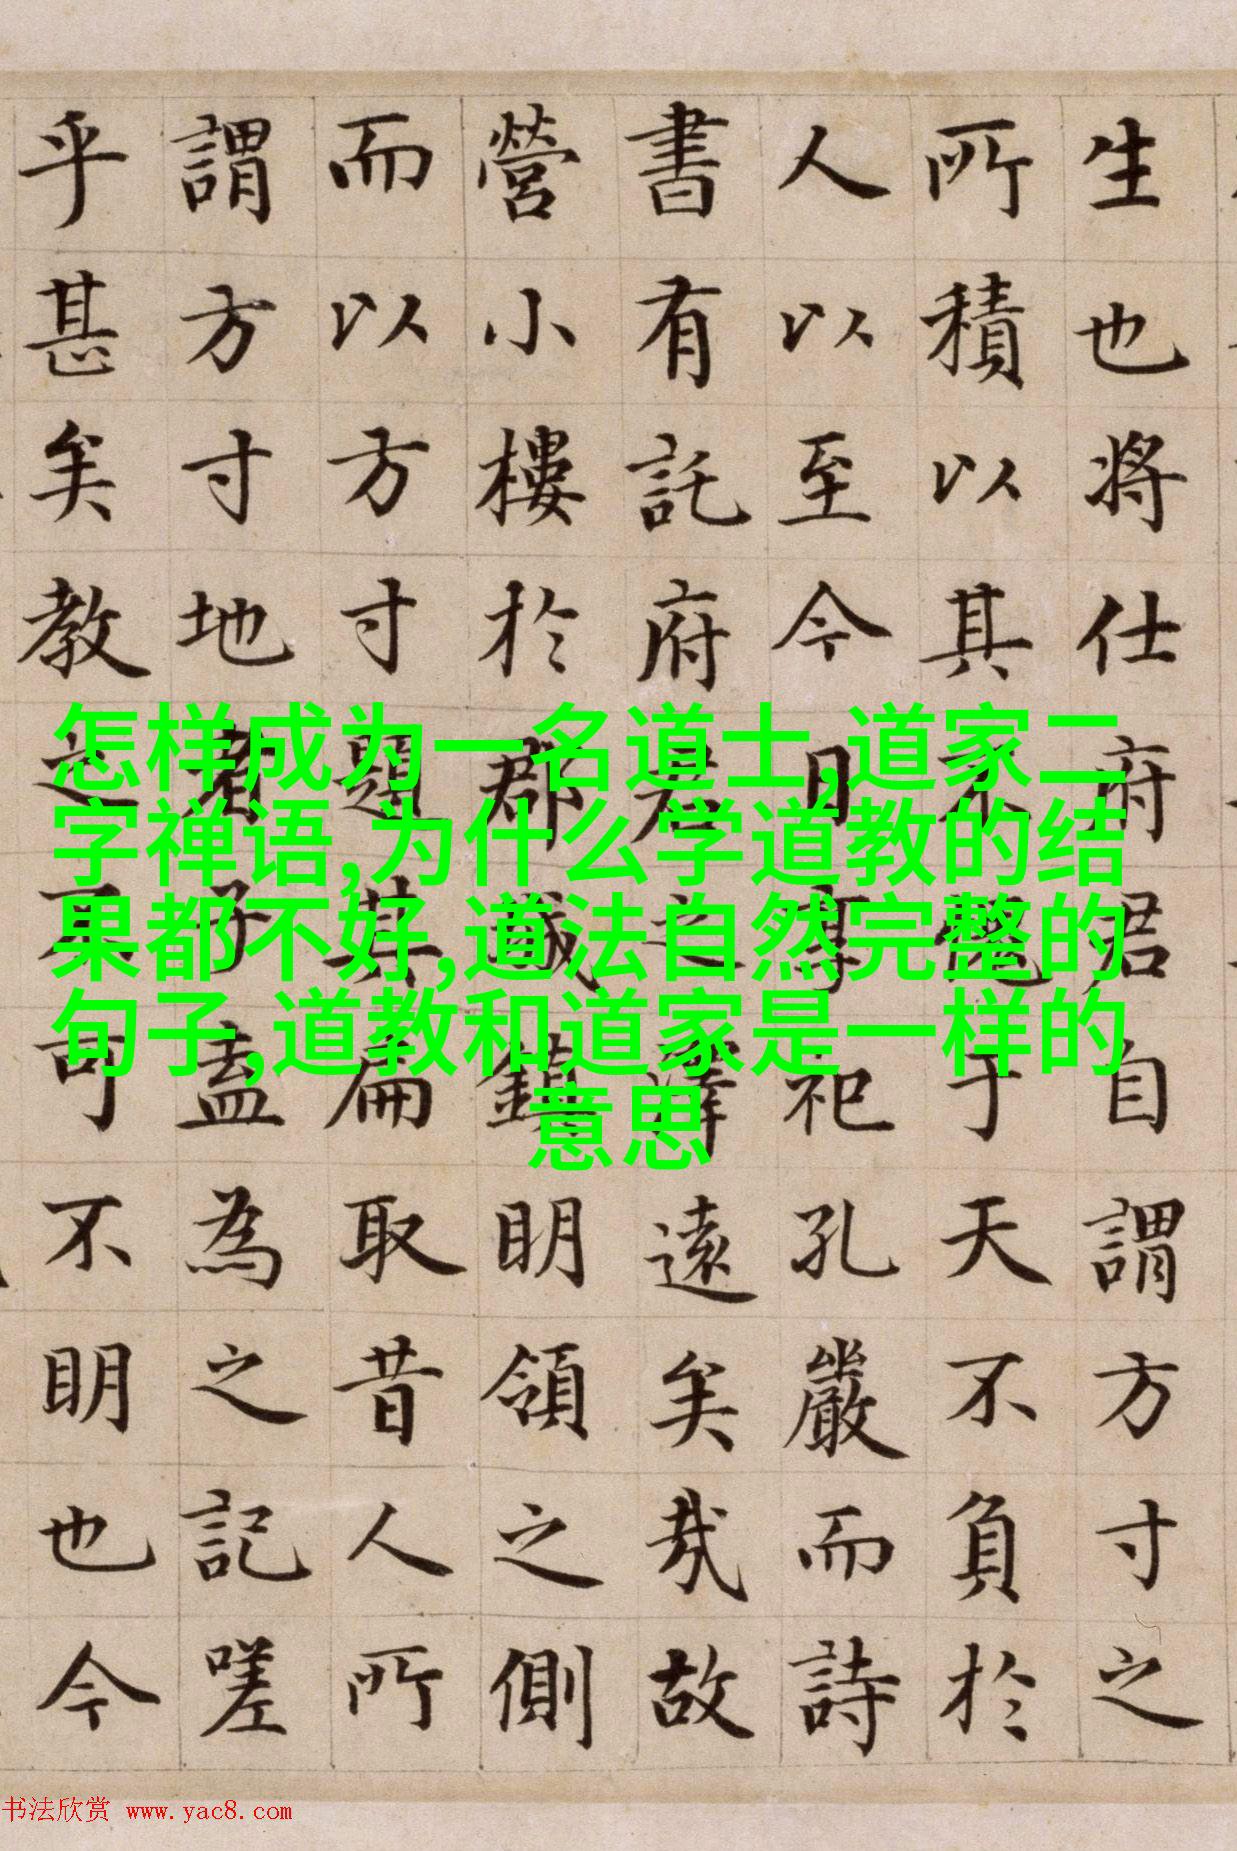 生也将仕府君自謂方寸之
所積以其不愧于天不負於
人以至今日專祀孔嚴而詩
書有託府君之澤遠矣哉故
營小樓於郡城鎮明領之側
而以方寸題其扁取昔人所
謂方寸地者子盍為之記嗟
乎甚矣教之不可不明也今
怎样成为一名道士,道家二
字禅语,为什么学道教的结
果都不好,道法自然完整的
句子,道教和道家是一样的
意思
书法欣赏 www.yac8.com